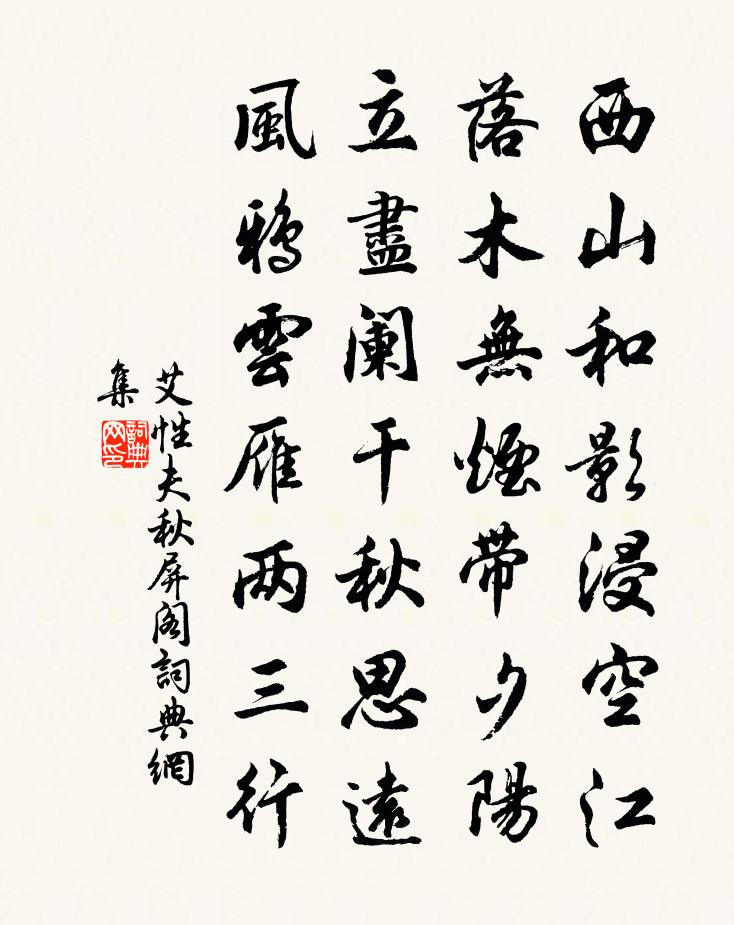 西山和影浸空江
落木無煙帶夕陽
立盡阑干秋思遠
風鴉雲雁两三行
艾性夫秋屏阁詞典網
集
詞典网印